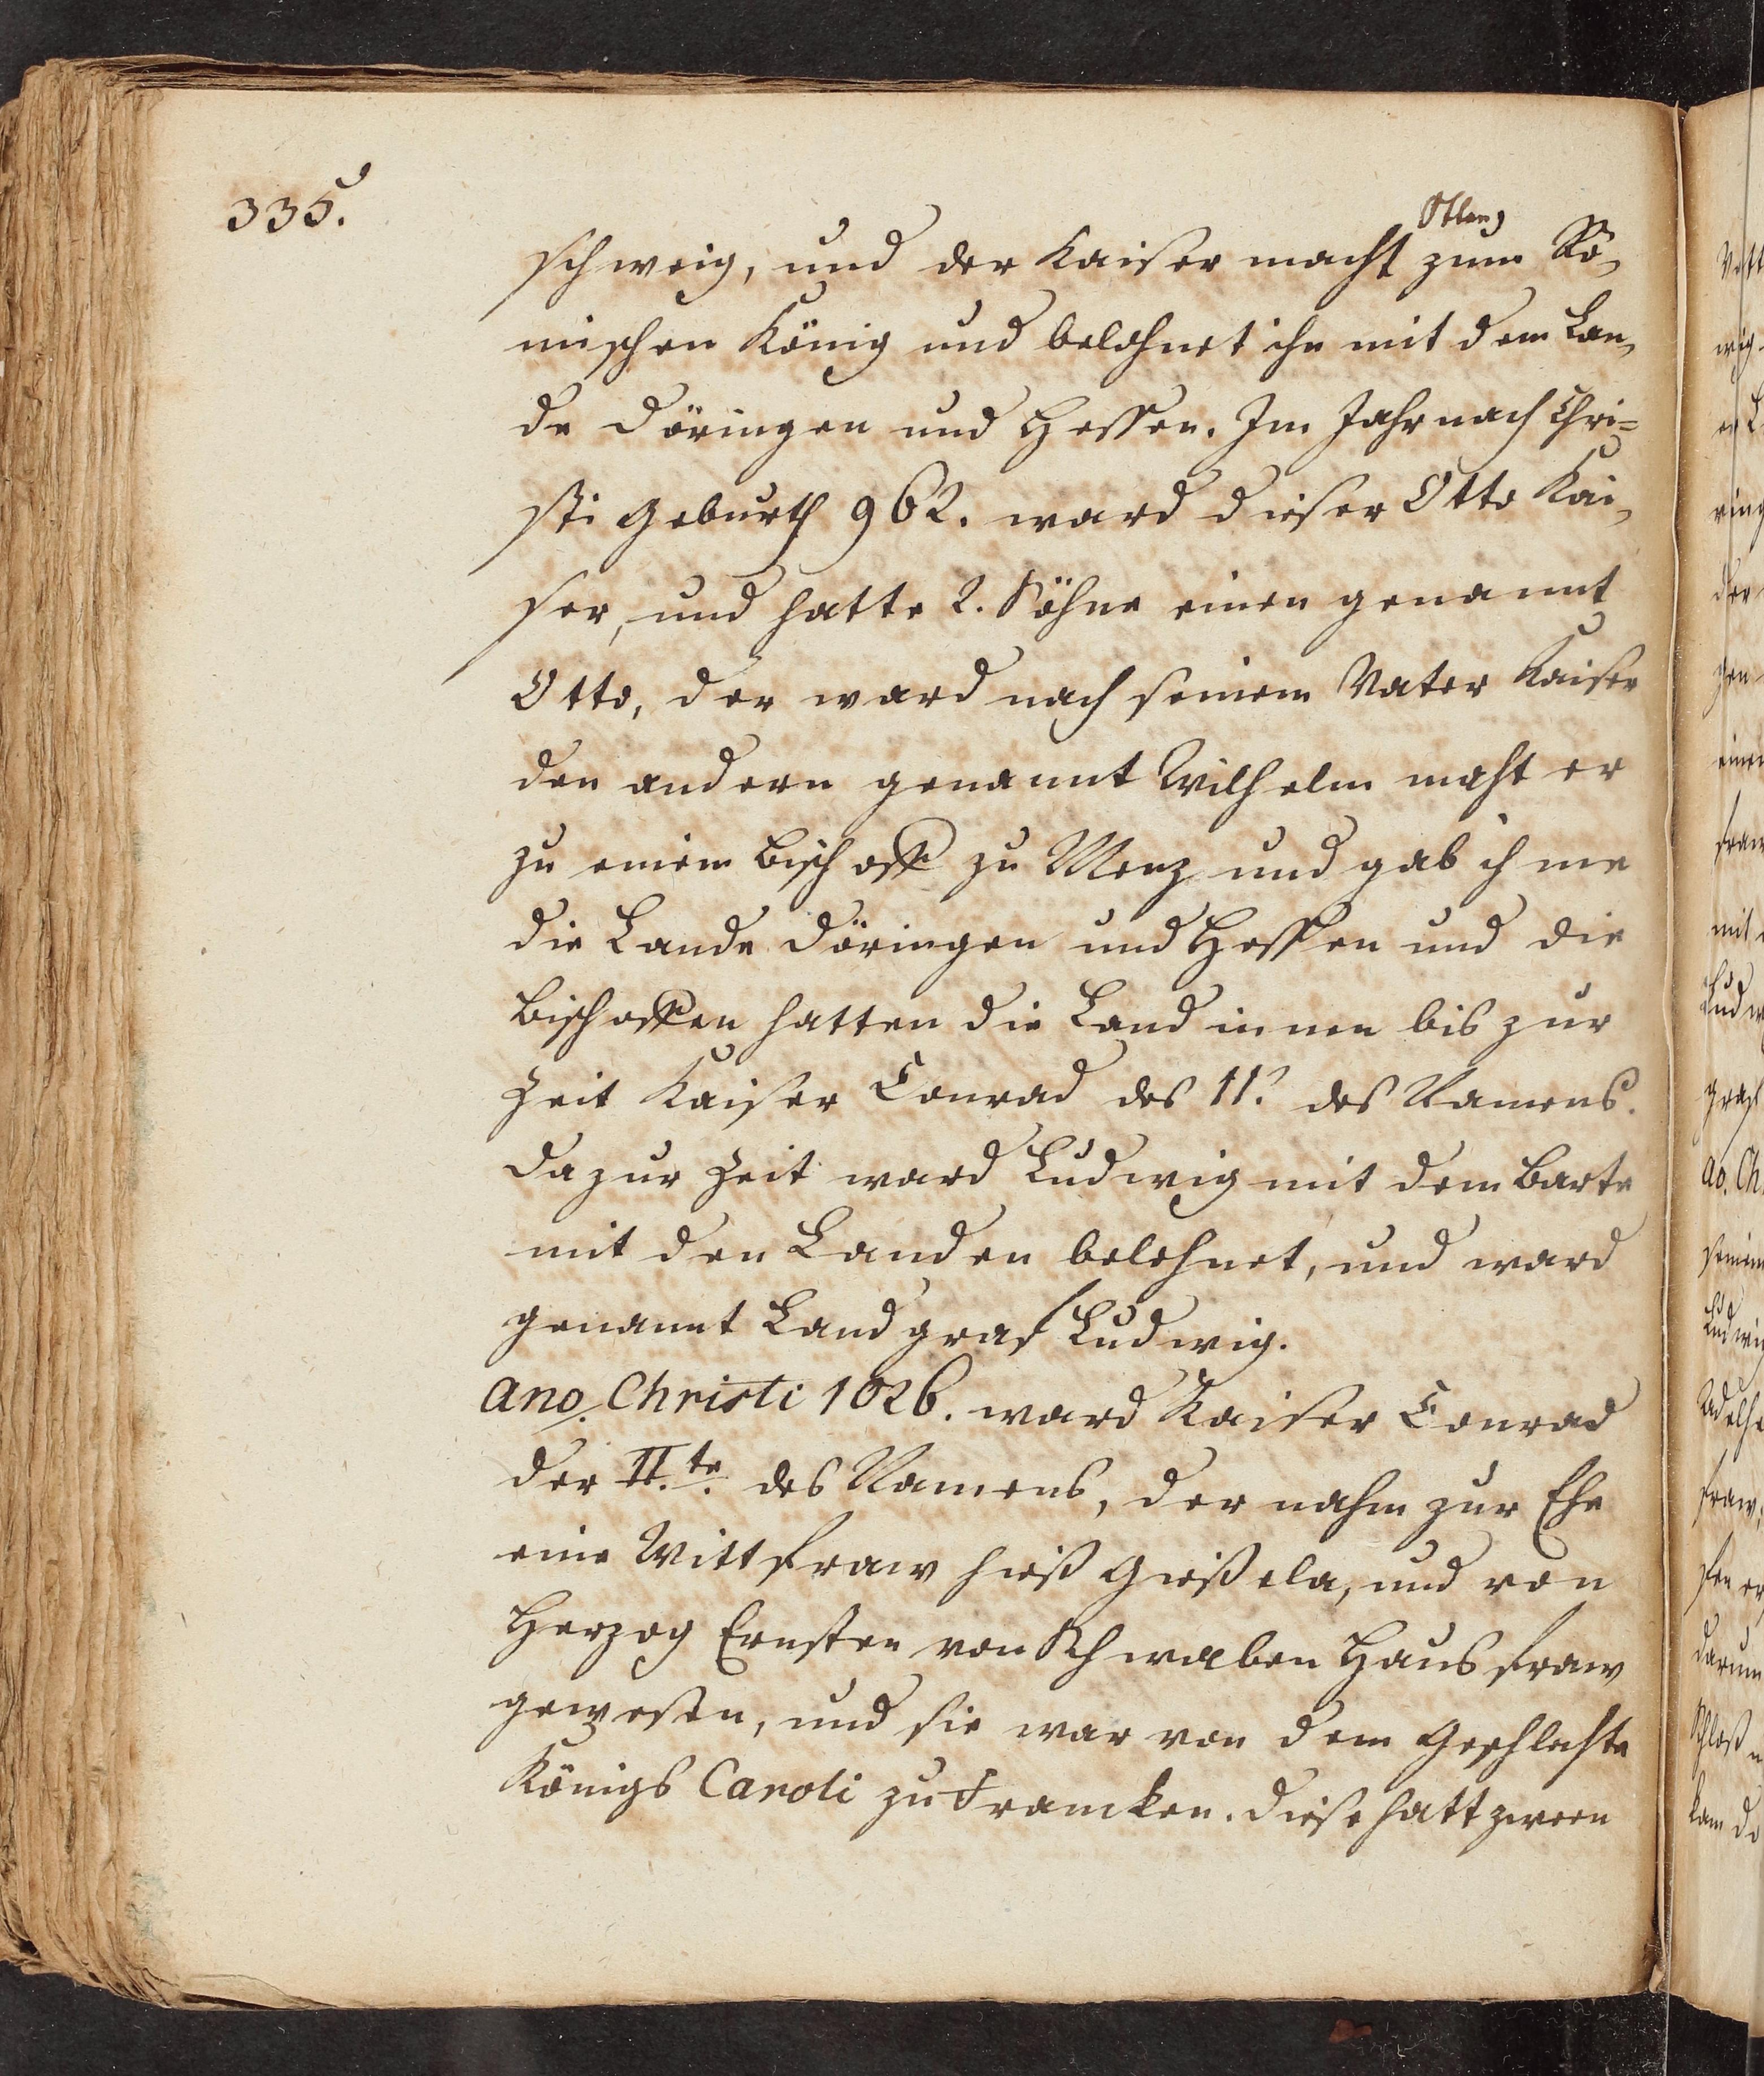 335.
Otten
schweig, und der Kaiser macht zum Rö,
mischen König und belehnet ihn mit dem Lan,
de Döringen und Hessen. Im Jahr nach Chri=
sti Geburth 962. ward dieser Otto Kai,
ser, und hatte 2. Söhne einen genannt
Otto, der ward nach seinem Vater Kaiser
den andern genannt Wilhelm maht er
zu einem Bischoffe zu Menz und gab ihme
die Lande Döringen und Hessen und die
Bischoffen hatten die Land innen bis zur
Zeit Kaiser Conrad des 11. des Namens.
Da zur Zeit ward Ludwig mit dem Barte
mit den Landen belehnet, und ward
genannt Landgraf Ludwig.
Ano. Christi 1026. ward Kaiser Conrad
der II.te des Namens, der nahm zur Ehe
eine Wittfraw hieß Gießela, und von
Herzog Ernsten von Schwaben Hausfraw
gewesen, und sie war von dem Geschlechte
Königs Caroli zu Francken. diese hatt zween